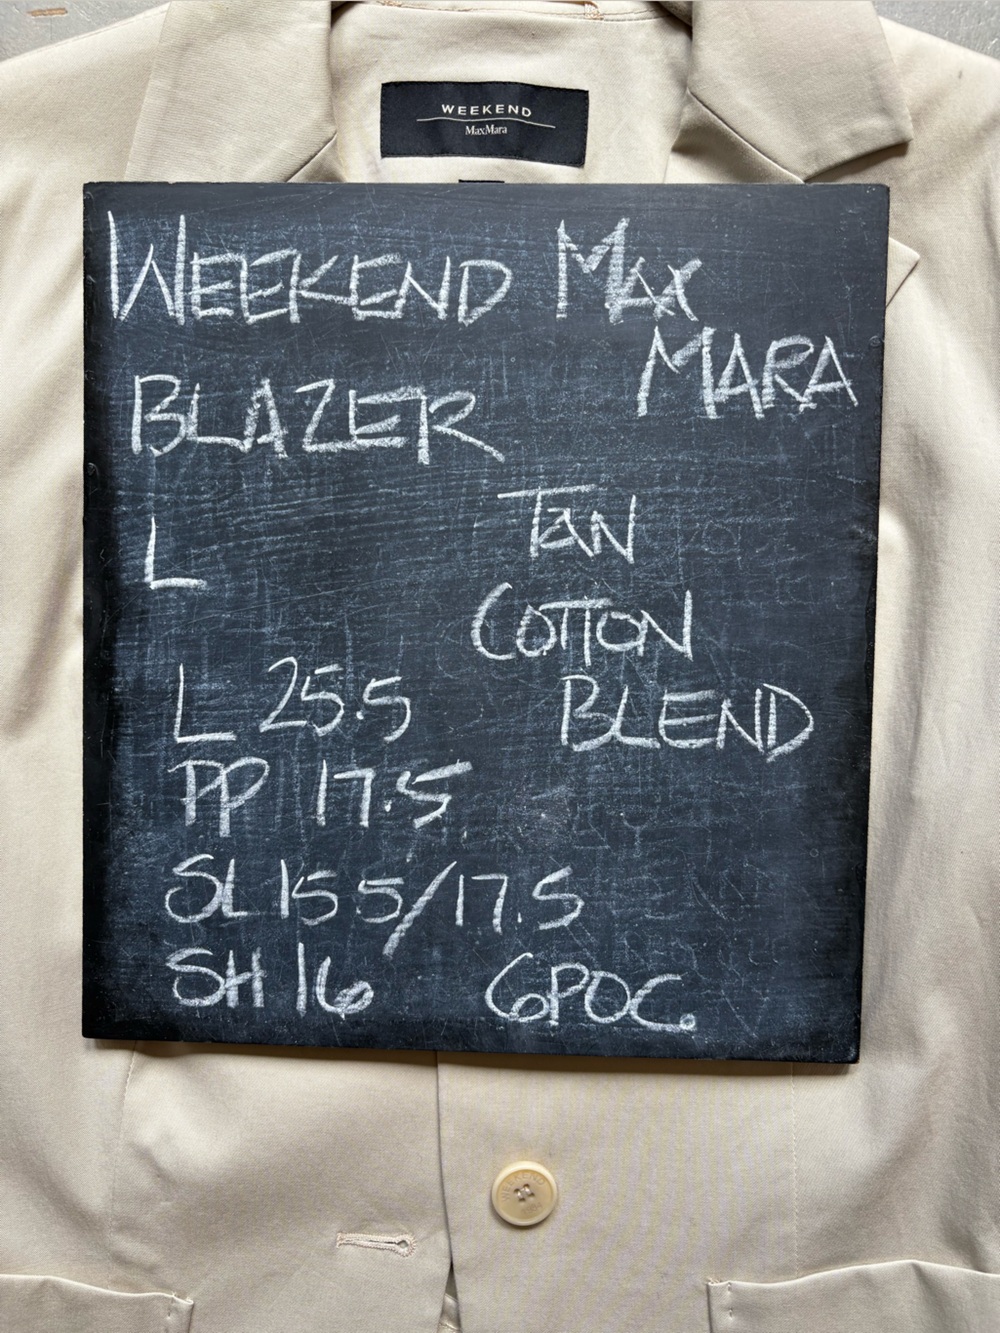 WEEKEND
MaxMara
WEEKEND MAX
MARA
BLAZER
L
TAN
COTTON
BLEND
L 25.5
PP 17.5
SL 15 5/17.5
SH 16 6POC.